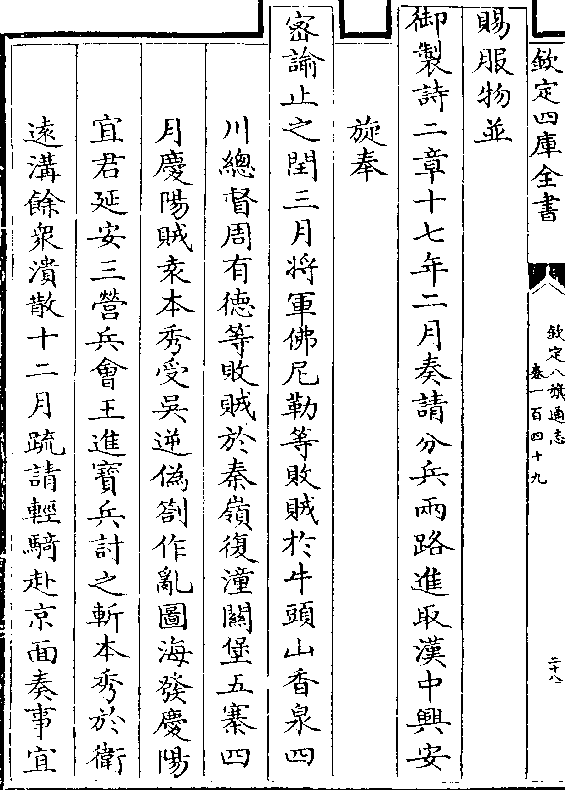 欽定四庫全書
欽定八旗通志
卷一百四十九
二十八
賜服物並
御製詩二章十七年二月奏請分兵兩路進取漢中興安
旋奉
密諭止之閏三月將軍佛尼勒等敗賊於牛頭山香泉四
川總督周有德等敗賊於秦嶺復潼關堡五寨四
月慶陽賊袁本秀受吳逆偽劄作亂圖海發慶陽
宜君延安三營兵會王進寶兵討之斬本秀於衛
遠溝餘衆潰散十二月疏請輕騎赴京面奏事宜